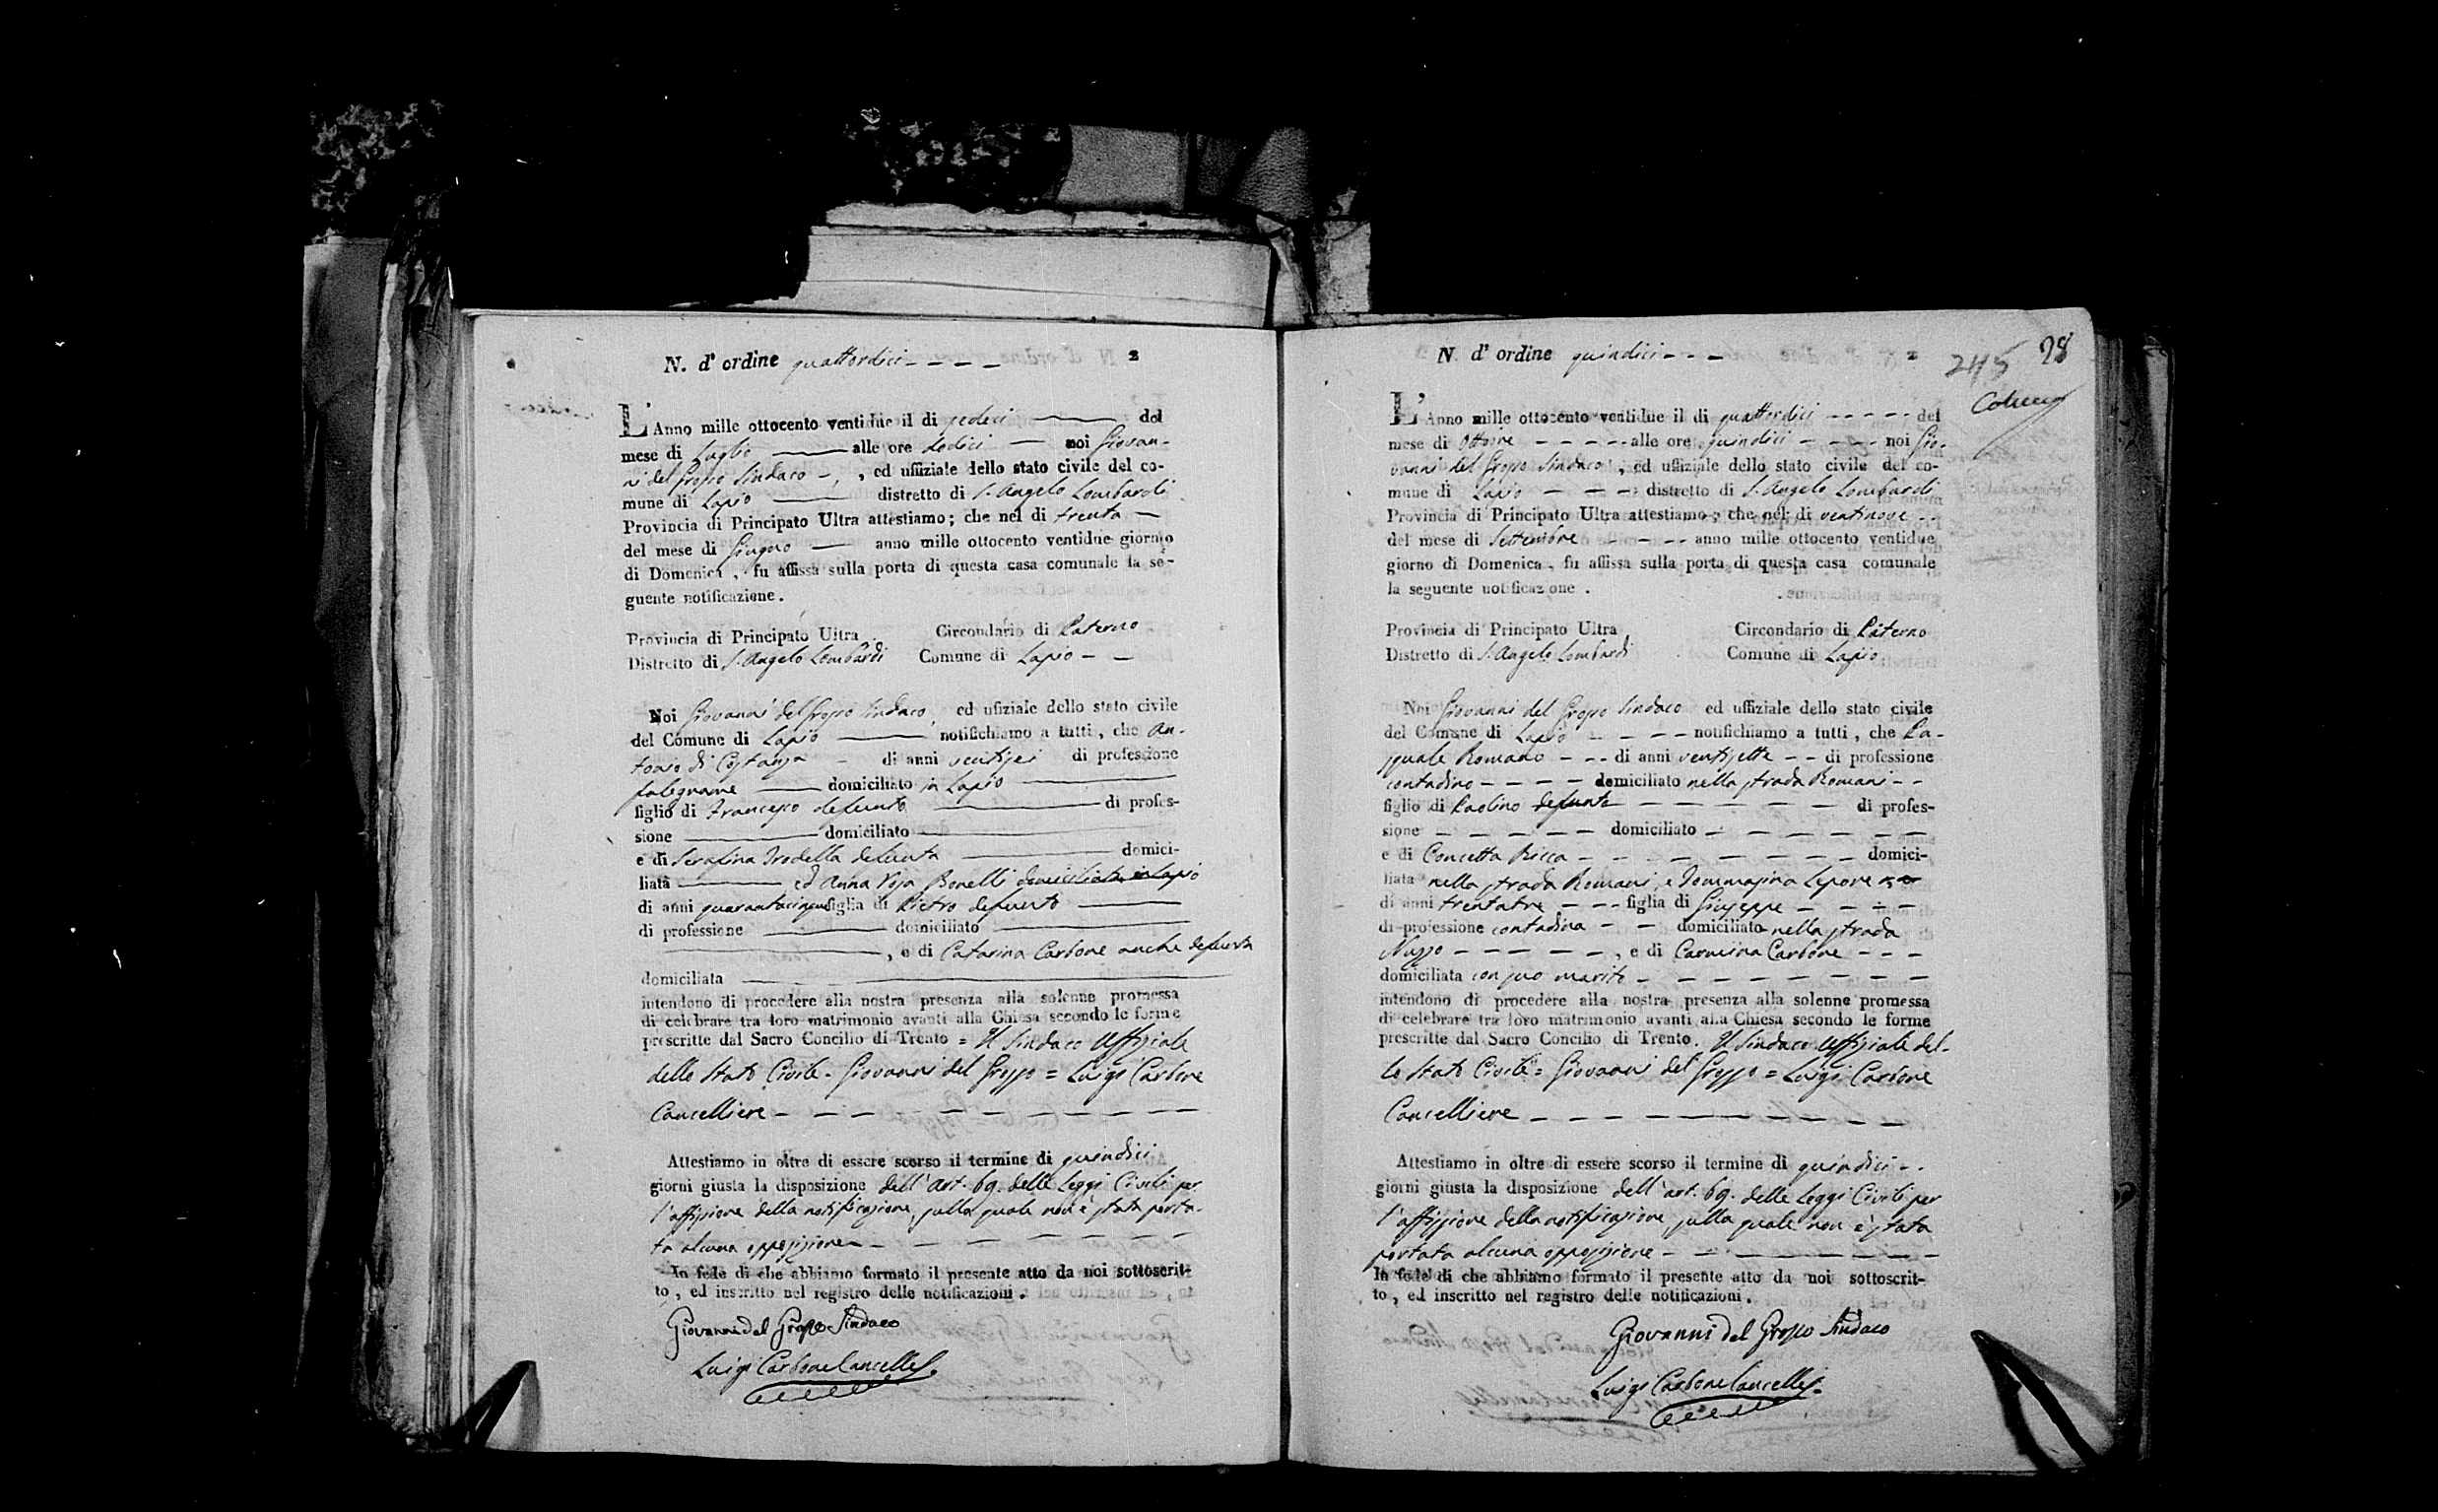 N. d' ordine quattordici - - - - 2
L'Anno mille ottocento ventidue il di sedeci del
mese di Luglio alle ore dodici noi Giovan-
ni del Grosso Sindaco -, , ed uffiziale dello stato civile del co-
mune di Lapio distretto di S. Angelo Lombardi
Provincia di Principato Ultra attestiamo; che nel di trenta
del mese di Giugno anno mille ottocento ventidue giorno
di Domenica, fu affissa sulla porta di questa casa comunale la se-
guente notificazione.
Provincia di Principato Ultra Circondario di Paterno
Distretto di S. Angelo Lombardi Comune di Lapio - -
Noi Giovanni del Grosso Sindaco, ed ufiziale dello stato civile
del Comune di Lapio notifichiamo a tutti, che An-
tonio di Costanza - di anni ventisei di professione
falegname domiciliato in Lapio
figlio di Francesco defunto di profes-
sione domiciliato
e di Serafina Trodella defunta domici-
liata ed Anna Rosa Bonelli domiciliata in Lapio
di anni quarantacinque figlia di Pietro defunto
di professione domiciliato
, e di Catarina Carbone anche defunta
domiciliata
intendono di procedere alla nostra presenza alla solenne promessa
di celebrare tra loro matrimonio avanti alla Chiesa secondo le forme
prescritte dal Sacro Concilio di Trento = Il Sindaco Uffiziale
dello Stato Civile - Giovanni del Grosso = Luigi Carbone
Cancelliere - - - - - - - - - -
Attestiamo in oltre di essere scorso il termine di quindici
giorni giusta la disposizione dell'art. 69. delle Leggi Civili per
l'affissione della notificazione, sulla quale non è stata porta-
ta alcuna opposizione - - - - - - - -
In fede di che abbiamo formato il presente atto da noi sottoscrit-
to, ed inscritto nel registro delle notificazioni.
Giovanni del Grosso Sindaco
Luigi Carbone Cancelle.
N. d' ordine quindici - - - 2 245 28
L'Anno mille ottocento ventidue il di quattordici - - - - del
mese di Ottobre - - - - - alle ore quindici - - - - noi Gio-
vanni del Grosso Sindaco, ed uffiziale dello stato civile del co-
mune di Lapio - - - distretto di S. Angelo Lombardi
Provincia di Principato Ultra attestiamo; che nel di ventinove - -
del mese di Settembre - - - - anno mille ottocento ventidue
giorno di Domenica, fu affissa sulla porta di questa casa comunale
la seguente notificazione.
Provincia di Principato Ultra Circondario di Paterno
Distretto di S. Angelo Lombardi Comune di Lapio
Noi Giovanni del Grosso Sindaco ed uffiziale dello stato civile
del Comune di Lapio - - - - notifichiamo a tutti, che Pa-
squale Romano - - - di anni ventisette - - di professione
contadino - - - - domiciliato nella strada Romani - -
figlio di Paolino defunto - - - - - - di profes-
sione - - - - - domiciliato - - - - - - -
e di Concetta Ricca - - - - - - - - domici-
liata nella strada Romani, e Tommasina Lepore
di anni trentatre - - - figlia di Giuseppe - - - -
di professione contadina - - domiciliato nella strada
Nuzzo - - - - - , e di Carmina Carbone - - -
domiciliata con suo marito - - - - - - - -
intendono di procedere alla nostra presenza alla solenne promessa
di celebrare tra loro matrimonio avanti alla Chiesa secondo le forme
prescritte dal Sacro Concilio di Trento. Il Sindaco Uffiziale del-
lo Stato Civile = Giovanni del Grosso = Luigi Carbone
Cancelliere - - - - - - - - - -
Attestiamo in oltre di essere scorso il termine di quindici - -
giorni giusta la disposizione dell'art. 69. delle Leggi Civili per
l'affissione della notificazione, sulla quale non è stata
portata alcuna opposizione - - - - - - - -
In fede di che abbiamo formato il presente atto da noi sottoscrit-
to, ed inscritto nel registro delle notificazioni.
Giovanni del Grosso Sindaco
Luigi Carbone Cancelle.